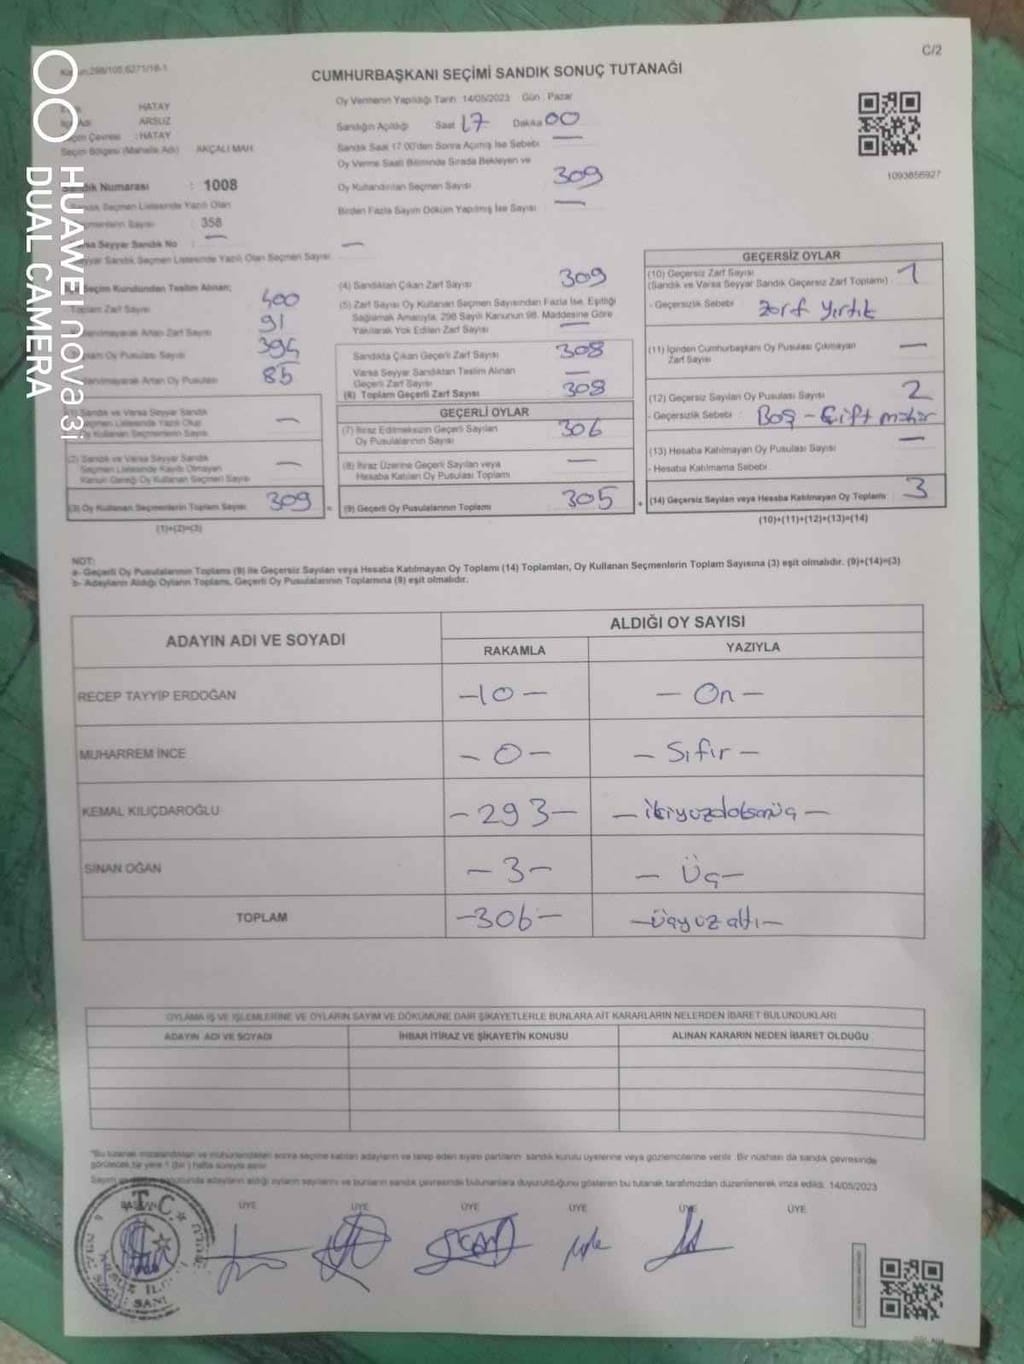 C/2
CUMHURBAŞKANI SEÇİMİ SANDIK SONUÇ TUTANAĞI
HATAY
ARSUZ
: HATAY
Seçim Bölgesi (Mahalle Adı) AKÇALI MAH.
Sandık Numarası : 1008
Sandık Seçmen Listesinde Yazılı Olan
Seçmenlerin Sayısı 358
Varsa Seyyar Sandık No : —
Seyyar Sandık Seçmen Listesinde Yazılı Olan Seçmen Sayısı: —
Oy Vermenin Yapıldığı Tarih: 14/05/2023 Gün : Pazar
Sandığın Açıldığı Saat 17 Dakika 00
Sandık Saat 17.00'den Sonra Açılmış İse Sebebi —
Oy Verme Saati Bitiminde Sırada Bekleyen ve
Oy Kullandırılan Seçmen Sayısı 309
Birden Fazla Sayım Döküm Yapılmış İse Sayısı —
1093856927
Seçim Kurulundan Teslim Alınan;
Toplam Zarf Sayısı 400
Kullanılmayarak Artan Zarf Sayısı 91
Toplam Oy Pusulası Sayısı 394
Kullanılmayarak Artan Oy Pusulası 85
(1) Sandık ve Varsa Seyyar Sandık
Seçmen Listesinde Yazılı Olup
Oy Kullanan Seçmenlerin Sayısı —
(2) Sandık ve Varsa Seyyar Sandık
Seçmen Listesinde Kayıtlı Olmayan
Kanun Gereği Oy Kullanan Seçmen Sayısı —
(3) Oy Kullanan Seçmenlerin Toplam Sayısı 309
(1)+(2)=(3)
(4) Sandıktan Çıkan Zarf Sayısı 309
(5) Zarf Sayısı Oy Kullanan Seçmen Sayısından Fazla İse, Eşitliği
Sağlamak Amacıyla, 298 Sayılı Kanunun 98. Maddesine Göre
Yakılarak Yok Edilen Zarf Sayısı —
Sandıkta Çıkan Geçerli Zarf Sayısı 308
Varsa Seyyar Sandıktan Teslim Alınan
Geçerli Zarf Sayısı —
(6) Toplam Geçerli Zarf Sayısı 308
GEÇERLİ OYLAR
(7) İtiraz Edilmeksizin Geçerli Sayılan
Oy Pusulalarının Sayısı 306
(8) İtiraz Üzerine Geçerli Sayılan veya
Hesaba Katılan Oy Pusulası Toplamı —
= (9) Geçerli Oy Pusulalarının Toplamı 305
GEÇERSİZ OYLAR
(10) Geçersiz Zarf Sayısı
(Sandık ve Varsa Seyyar Sandık Geçersiz Zarf Toplamı) 1
- Geçersizlik Sebebi : Zarf Yırtık
(11) İçinden Cumhurbaşkanı Oy Pusulası Çıkmayan
Zarf Sayısı —
(12) Geçersiz Sayılan Oy Pusulası Sayısı 2
- Geçersizlik Sebebi : Boş - Çift mühür
(13) Hesaba Katılmayan Oy Pusulası Sayısı —
- Hesaba Katılmama Sebebi
+ (14) Geçersiz Sayılan veya Hesaba Katılmayan Oy Toplamı 3
(10)+(11)+(12)+(13)=(14)
NOT:
a- Geçerli Oy Pusulalarının Toplamı (9) ile Geçersiz Sayılan veya Hesaba Katılmayan Oy Toplamı (14) Toplamları, Oy Kullanan Seçmenlerin Toplam Sayısına (3) eşit olmalıdır. (9)+(14)=(3)
b- Adayların Aldığı Oyların Toplamı, Geçerli Oy Pusulalarının Toplamına (9) eşit olmalıdır.
ADAYIN ADI VE SOYADI ALDIĞI OY SAYISI
RAKAMLA YAZIYLA
RECEP TAYYİP ERDOĞAN -10- -On-
MUHARREM İNCE -0- -Sıfır-
KEMAL KILIÇDAROĞLU -293- -ikiyüzdoksanüç-
SİNAN OĞAN -3- -Üç-
TOPLAM -306- -üçyüzaltı-
OYLAMA İŞ VE İŞLEMLERİNE VE OYLARIN SAYIM VE DÖKÜMÜNE DAİR ŞİKAYETLERLE BUNLARA AİT KARARLARIN NELERDEN İBARET BULUNDUKLARI
ADAYIN ADI VE SOYADI İHBAR İTİRAZ VE ŞİKAYETİN KONUSU ALINAN KARARIN NEDEN İBARET OLDUĞU
"Bu tutanak imzalandıktan ve mühürlendikten sonra seçime katılan adayların ve talep eden siyasi partilerin sandık kurulu üyelerine veya gözlemcilerine verilir. Bir nüshası da sandık çevresinde
görülecek bir yere 1 (bir) hafta süreyle asılır.
adayların aldığı oyların sayılarını ve bunların sandık çevresinde bulunanlara duyurulduğunu gösteren bu tutanak tarafımızdan düzenlenerek imza edildi. 14/05/2023
ÜYE ÜYE ÜYE ÜYE ÜYE ÜYE
T.C.
HUAWEI nova 3i
DUAL CAMERA